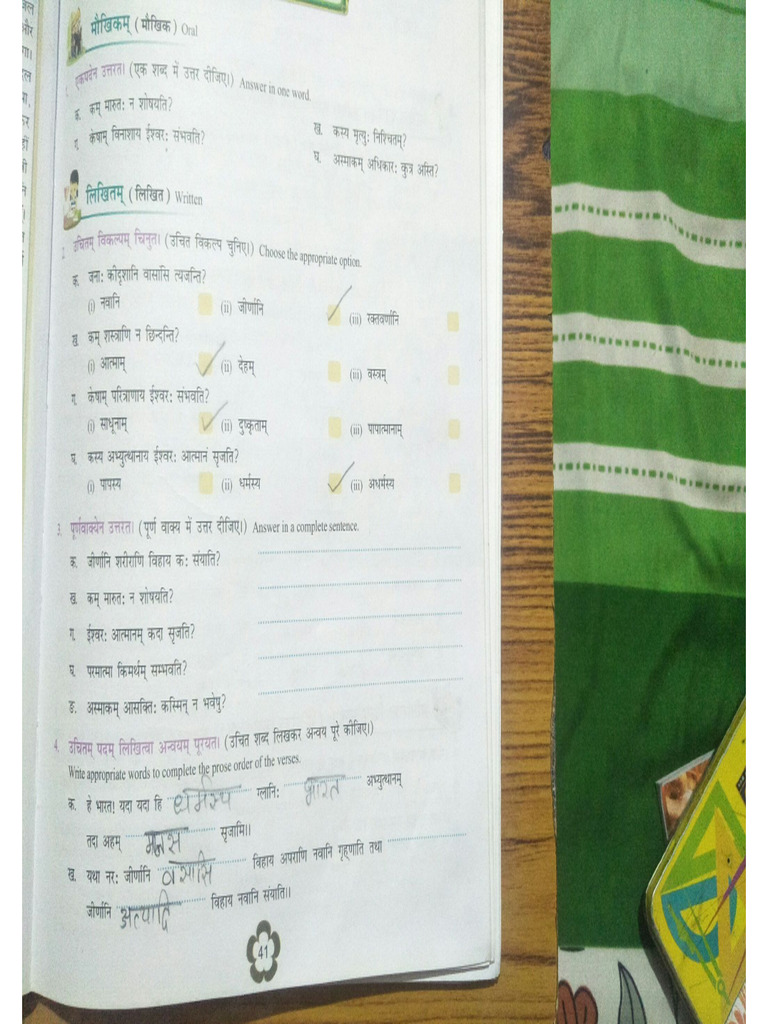 मौखिकम् (मौखिक) Oral
1. एकपदेन उत्तरत। (एक शब्द में उत्तर दीजिए।) Answer in one word.
क. कम् मारुतः न शोषयति?
ख. कस्य मृत्युः निश्चितम्?
ग. केषाम् विनाशाय ईश्वरः संभवति?
घ. अस्माकम् अधिकारः कुत्र अस्ति?
लिखितम् (लिखित) Written
2. उचितम् विकल्पम् चिनुत। (उचित विकल्प चुनिए।) Choose the appropriate option.
क. जनाः कीदृशानि वासांसि त्यजन्ति?
(i) नवानि (ii) जीर्णानि (iii) रक्तवर्णानि
ख. कम् शस्त्राणि न छिन्दन्ति?
(i) आत्माम् (ii) देहम् (iii) वस्त्रम्
ग. केषाम् परित्राणाय ईश्वरः संभवति?
(i) साधूनाम् (ii) दुष्कृताम् (iii) पापात्मानाम्
घ. कस्य अभ्युत्थानाय ईश्वरः आत्मानं सृजति?
(i) पापस्य (ii) धर्मस्य (iii) अधर्मस्य
3. पूर्णवाक्येन उत्तरत। (पूर्ण वाक्य में उत्तर दीजिए।) Answer in a complete sentence.
क. जीर्णानि शरीराणि विहाय कः संयाति?
ख. कम् मारुतः न शोषयति?
ग. ईश्वरः आत्मानम् कदा सृजति?
घ. परमात्मा किमर्थम् सम्भवति?
ङ. अस्माकम् आसक्तिः कस्मिन् न भवेषु?
4. उचितम् पदम् लिखित्वा अन्वयम् पूरयत। (उचित शब्द लिखकर अन्वय पूरे कीजिए।)
Write appropriate words to complete the prose order of the verses.
क. हे भारत! यदा यदा हि धर्मस्य ग्लानिः भारत अभ्युत्थानम्
तदा अहम् सृजामि।।
ख. यथा नरः जीर्णानि वसासि विहाय अपराणि नवानि गृह्णाति तथा
जीर्णानि विहाय नवानि संयाति।।
41